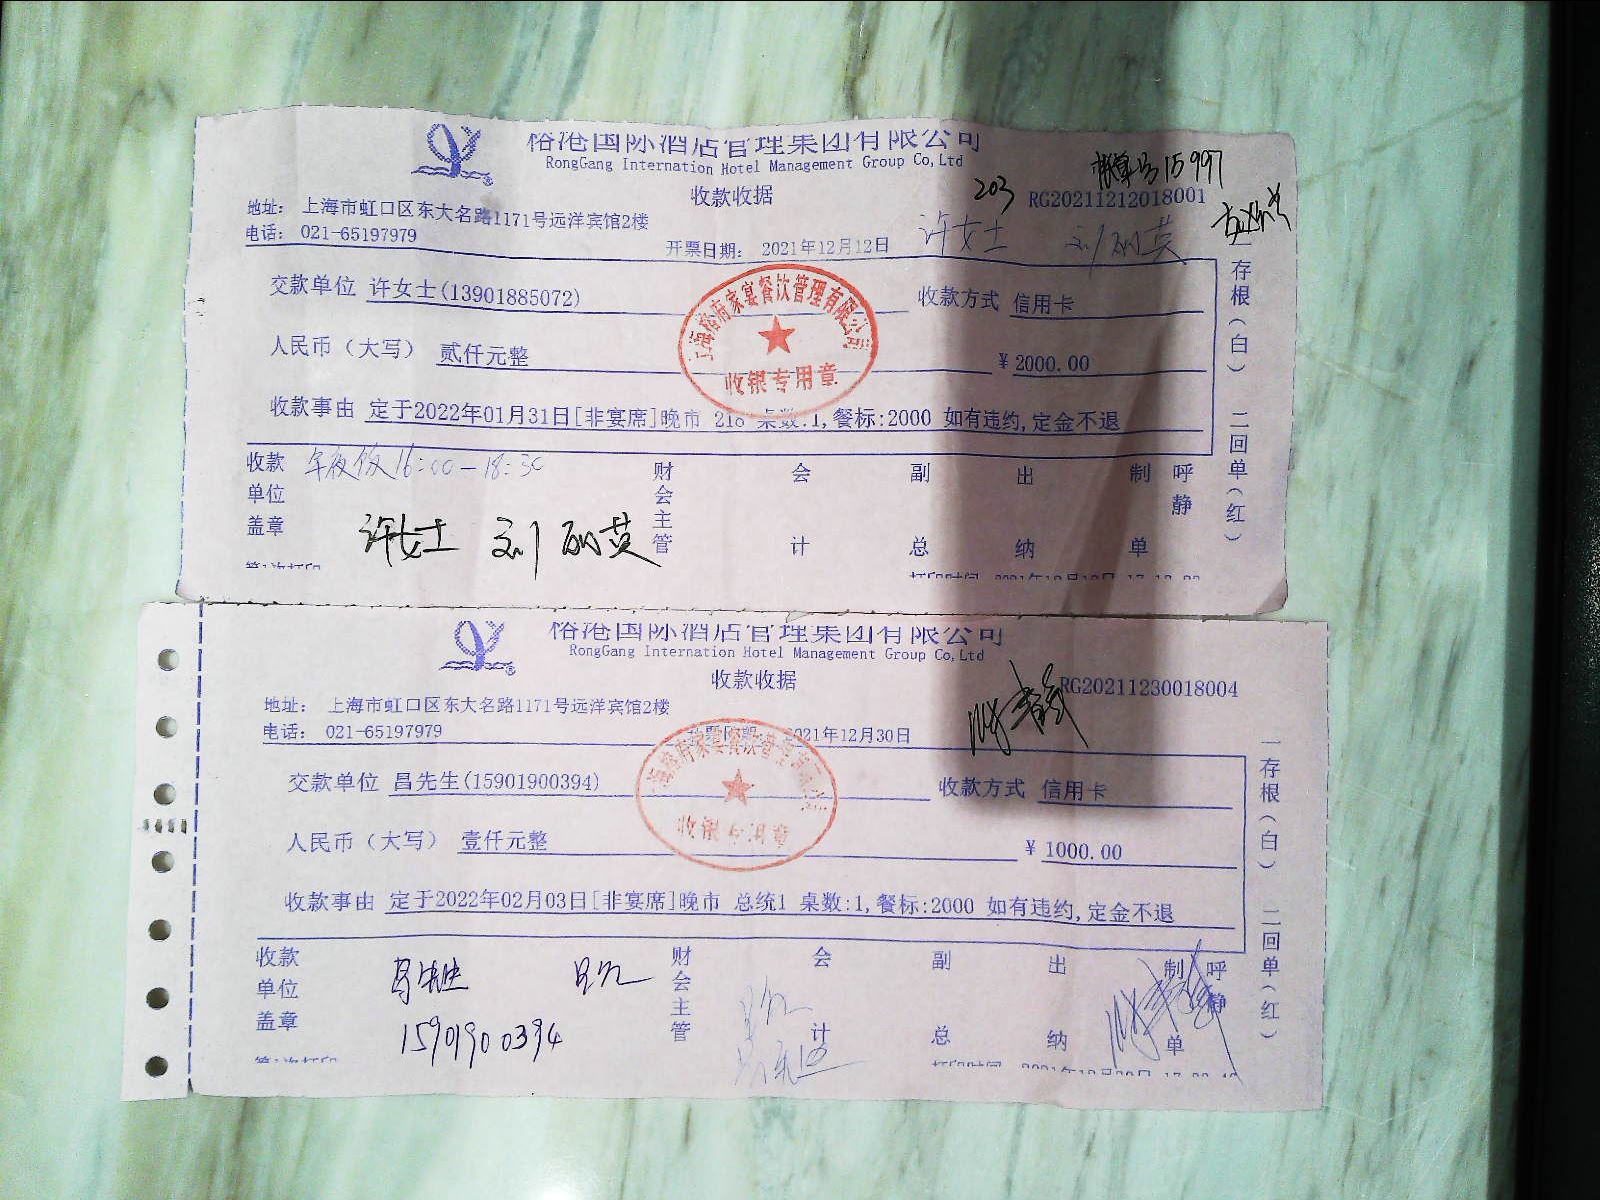 裕港国际酒店管理集团有限公司
RongGang Internation Hotel Management Group Co,Ltd
收款收据
203
帐单号15997
RG20211212018001
地址： 上海市虹口区东大名路1171号远洋宾馆2楼
电话： 021-65197979
开票日期： 2021年12月12日
许女士 刘丽英
交款单位 许女士(13901885072)
收款方式 信用卡
人民币（大写） 贰仟元整
¥ 2000.00
收款事由 定于2022年01月31日[非宴席]晚市 218 桌数:1,餐标:2000 如有违约,定金不退
上海裕府家宴餐饮管理有限公司
收银专用章
一存根（白） 二回单（红）
收款单位盖章
年夜饭16:00-18:30
财会主管 会计 副总 出纳 制单 呼静
许女士 刘丽英
第1次打印
打印时间 2021年12月12日 17:12:
裕港国际酒店管理集团有限公司
RongGang Internation Hotel Management Group Co,Ltd
收款收据
RG20211230018004
地址： 上海市虹口区东大名路1171号远洋宾馆2楼
电话： 021-65197979
开票日期： 2021年12月30日
交款单位 昌先生(15901900394)
收款方式 信用卡
人民币（大写） 壹仟元整
¥ 1000.00
收款事由 定于2022年02月03日[非宴席]晚市 总统1 桌数:1,餐标:2000 如有违约,定金不退
上海裕府家宴餐饮管理有限公司
收银专用章
一存根（白） 二回单（红）
收款单位盖章
15901900394
财会主管 会计 副总 出纳 制单 呼静
第1次打印
打印时间 2021年12月30日 17: